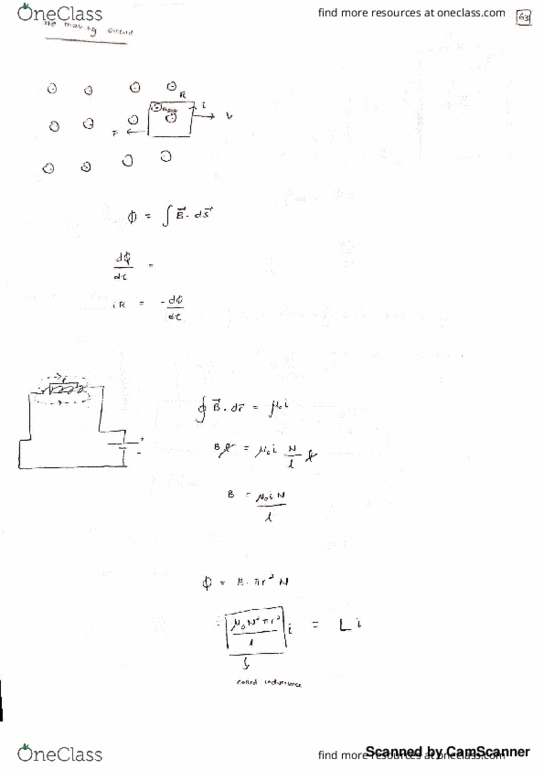 OneClass
find more resources at oneclass.com
63
The moving circuit
R
i
F
v
Φ = ∫ B⃗ · ds⃗
dΦ/dt =
iR = -dΦ/dt
+
-
∮ B⃗ · dr⃗ = μ₀i
Bl = μ₀i N/l l
B = μ₀iN/l
Φ = B · πr² N
= μ₀N²πr²/l i = Li
called inductance
OneClass
find more resources at oneclass.com
Scanned by CamScanner